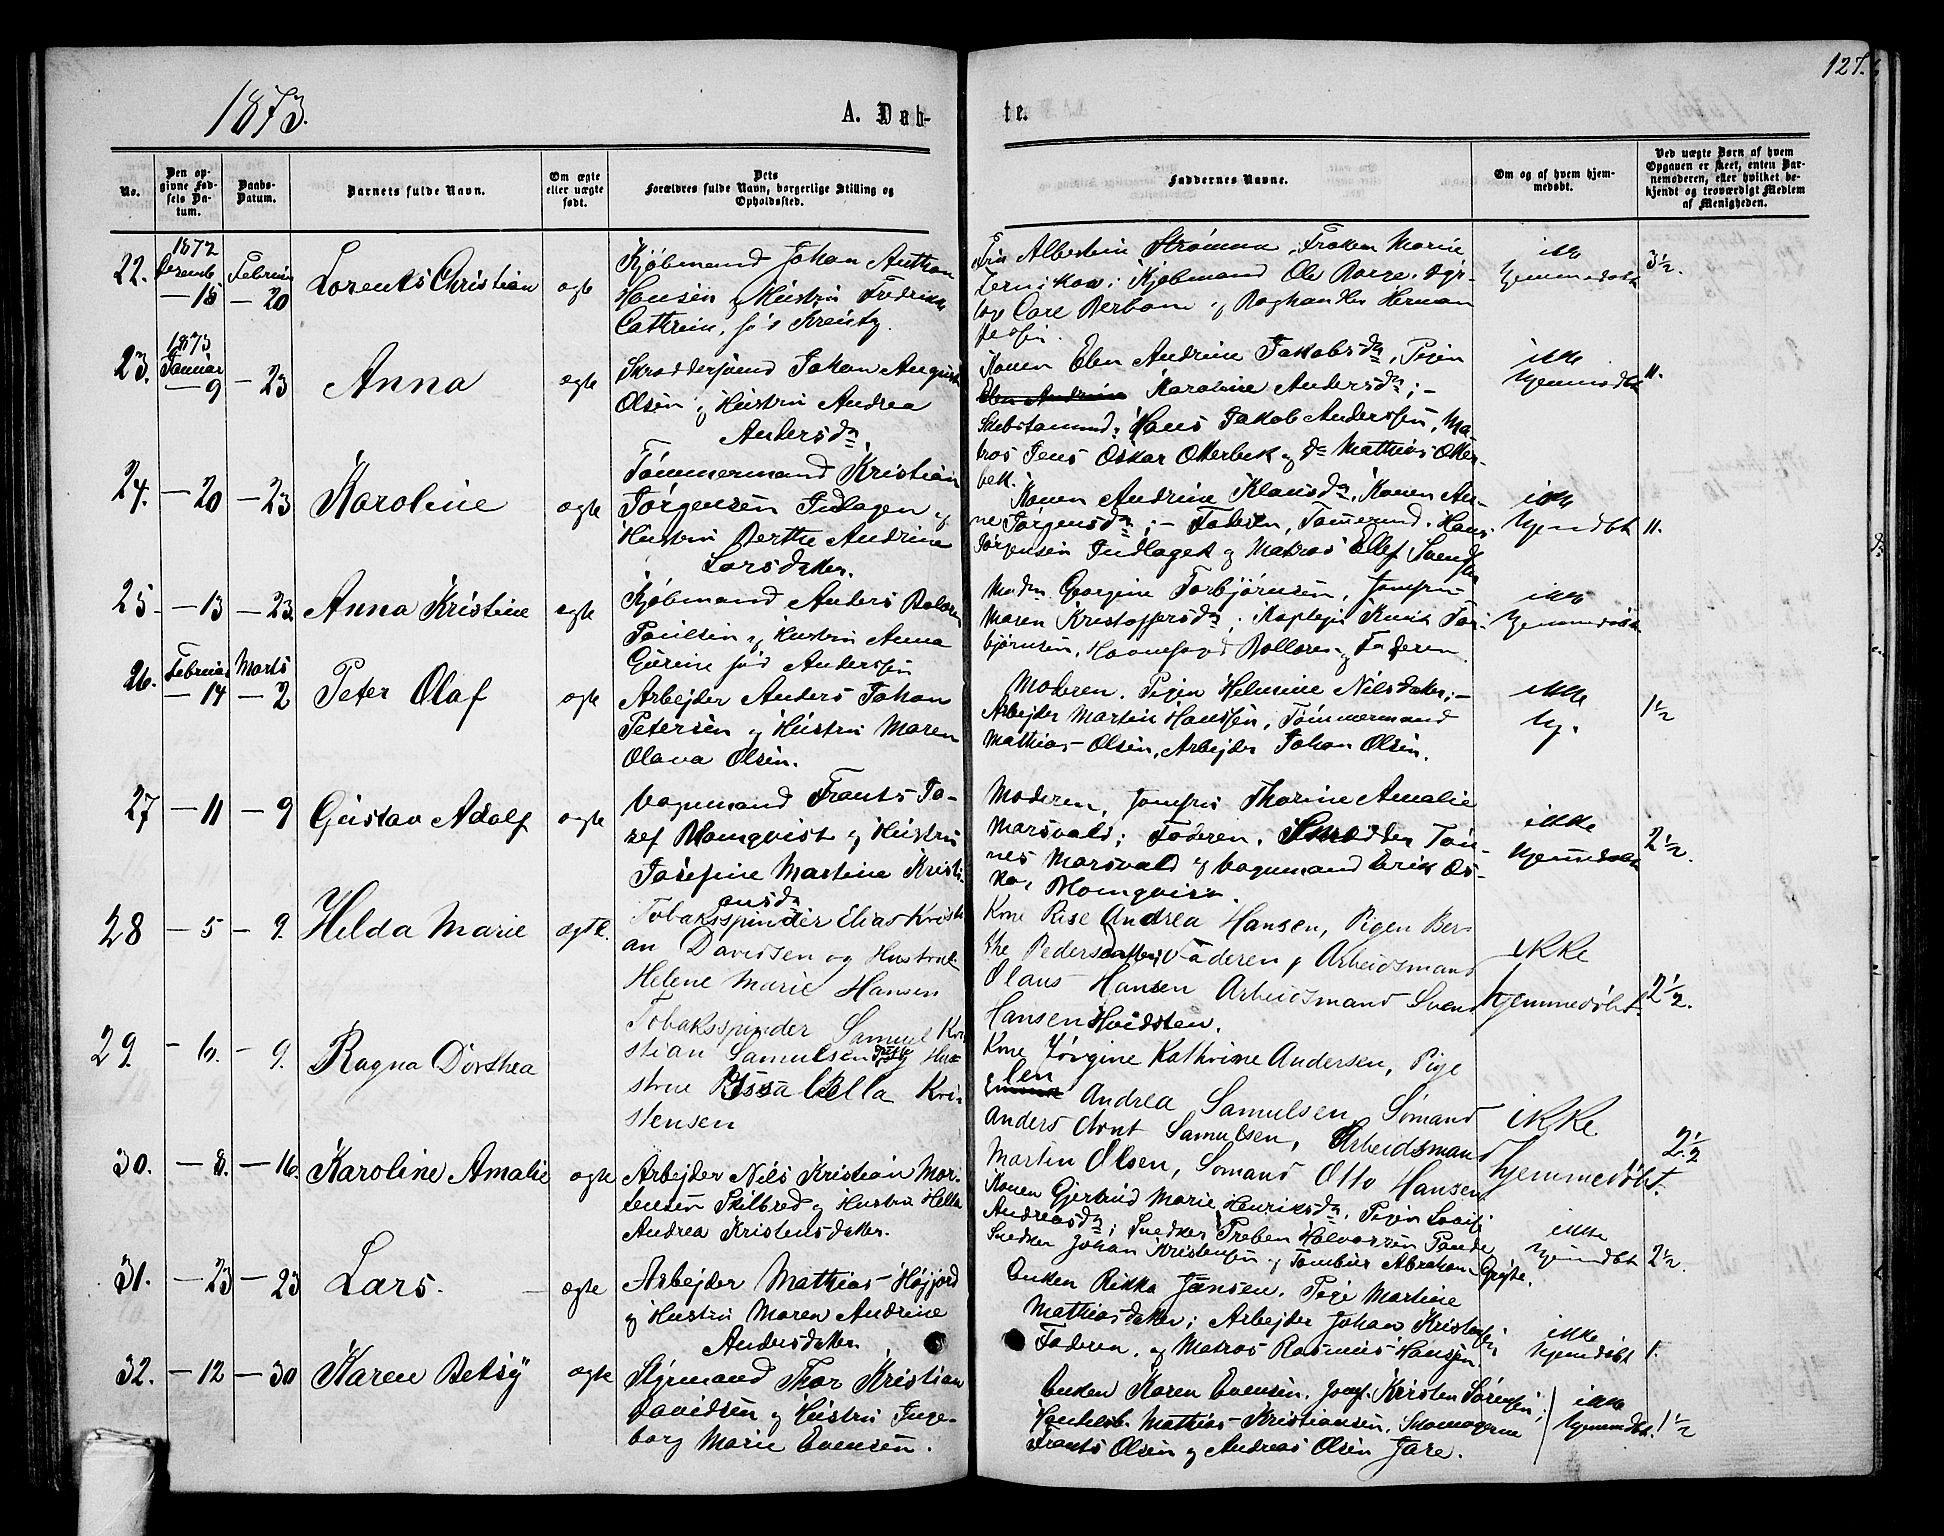 127.
1873.
A. Døb-
te.
No.
Den op-
givne Fød-
sels Da-
tum.
Daabs-
Datum.
Barnets fulde Navn.
Om ægte
eller uægte
født.
Dets
Forældres fulde Navn, borgerlige Stilling og
Opholdssted.
Faddernes Navne.
Om og af hvem hjem-
medøbt.
Ved uægte Børn af hvem
Opgaven er skeet, enten Bar-
nemoderen, eller hvilket be-
kjendt og troværdigt Medlem
af Menigheden.
22.
1872
Decemb
— 18
Februar
— 20
Lorents Christian
ægte
Kjøbmand Johan Anthon
Hansen og Hustru Fredrikke
Cathrine, fød
Albertine Strømme, Frøken Marie
Kjøbmand Ole
og Boghandler Herman
ikke
hjemmedøbt
3½.
23.
1873
Januar
— 9
— 23
Anna
ægte
Skræddersvend Johan August
Olsen og Hustru Andrea
Andersdr.
Konen Elen Andrine Jakobsdr, Pigen
Elen Andrine Karoline Andersdr; —
Hans Jakob Anderssen, Ma-
tros Jens Oskar Otterbek og do Mathias Otter-
bek.
ikke
hjemmedøbt
11.
24.
— 20
— 23
Karoline
ægte
Tømmermand Kristian
Jørgensen Indlagen og
Hustru Berthe Andrine
Larsdatter.
Konen Andrine Klausdr, Konen An-
ne Jørgensdr; — Faderen, Tømermd. Hans
Jørgensen Indlaget og Matros Ellef
ikke
hjemdøbt
11.
25
— 13
— 23
Anna Kristine
ægte
Kjøbmand Anders
Paulsen og Hustru Anna
Gurine fød Anderssen
Madm. Georgine Torbjørnsen, Jomfru
Maren Kristoffersdr; Kaptejn Knut Tor-
bjørnsen, og Faderen
ikke
hjemmedøbt
26.
Februar
— 14
Marts
— 2
Peter Olaf
ægte
Arbejder Anders Johan
Petersen og Hustru Maren
Olava Olsen.
Moderen, Pigen Helmine Nilsdatter; —
Arbejder Martin Hanssen, Tømmermand
Mathias Olsen, Arbejder Johan Olsen.
ikke
hj.
1½
27
— 11
— 9
Gustav Adolf
ægte
Vognmand Frants Jo-
sef Blomqvist og Hustru
Josefine Martine Kristi-
ansdr
Moderen, Jomfru Thorine Amalie
Marsvald; Faderen, Smedden Tøn-
nes Marsvald og Vognmand Erik Os-
kar Blomqvist.
ikke
hjemmedøbt
2½.
28
— 5
— 9.
Hilda Marie
ægte.
Tobaksspinder Elias Kristi
an Davidsen og Hustrue
Helene Marie Hansen
Kone Andrea Hansen, Pigen Ber-
the Pedersdatter, Faderen, Arbeidsmand
Olaus Hansen Arbeidsmand Svend
Hansen Hvidsten.
ikke
hjemmedøbt.
2½.
29.
— 6.
— 9.
Ragna Dorthea
Tobaksspinder Samuel Kri
stian Samulsen og Hu
strue Issa Bella Kri
stensen
Kone Jørgine Kathrine Andersen, Pige
len
Andrea Samulsen, Sømand
Anders Arnt Samulsen, Arbeidsmand
Martin Olsen, Sømand Otto Hansen
ikke
hjemmedøbt.
2½
30.
— 8.
— 16.
Karoline Amalie
ægte
Arbejder Nils Kristian Mor-
tensen Skilbred og Hustru Hella
Andrea Kristensdatter.
Konen Gjertrud Marie Henriksdr, Pigen
Andreasdr; Snedker Preben Halvorsen
Snedker Johan Kristensen og Abraham
ikke
hjemdøbt
2½.
31.
— 23
— 23
Lars.
ægte
Arbejder Mathias Højjord
og Hustru Maren Andrine
Andersdatter
Enken Rikka Jensen, Pige Martine
Mathiasdatter; Arbejder Johan Kristensen
Faderen, og Matros Rasmus Hansen.
ikke
hjemdøbt
1.
32.
— 12
— 30
Karen Betsy
ægte
Styrmand Thor Kristian
Davidsen og Hustru Inge-
borg Marie Evensen.
Enken Karen Evensen, Jomf. Kirsten Sørensen;
Handelsb. Mathias Kristiansen, Skomagerne
Frants Olsen og Andreas Olsen Jare.
ikke
hjemmedøbt.
1½